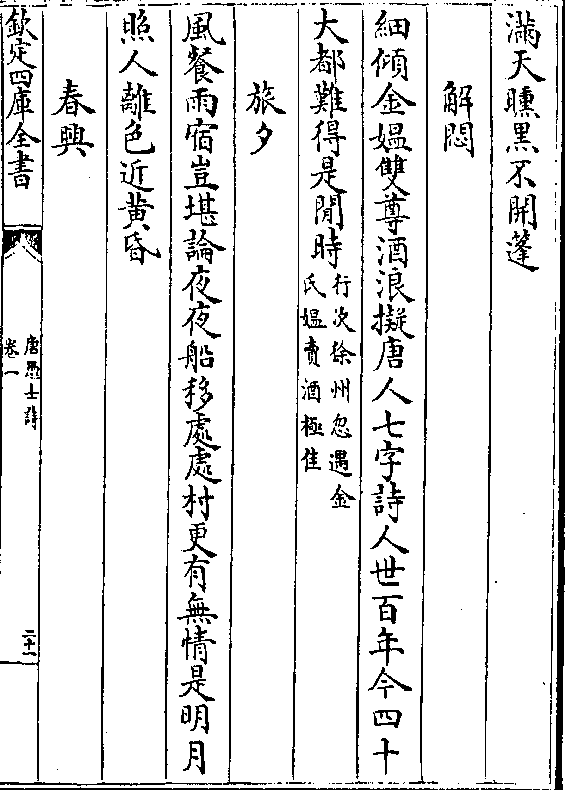 滿天曛黑不開蓬
解悶
細傾金媼雙尊酒浪擬唐人七字詩人世百年今四十
大都難得是閒時行次徐州忽遇金
氏媼賣酒極佳
旅夕
風餐雨宿豈堪論夜夜船移處處村更有無情是明月
照人離色近黄昏
春興
欽定四庫全書
唐愚士詩
卷一
二十一